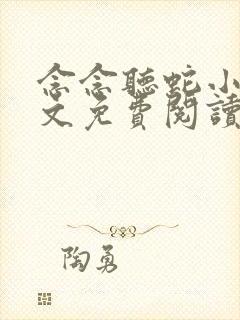 念念聽蛇小
文免費閱讀
陶勇